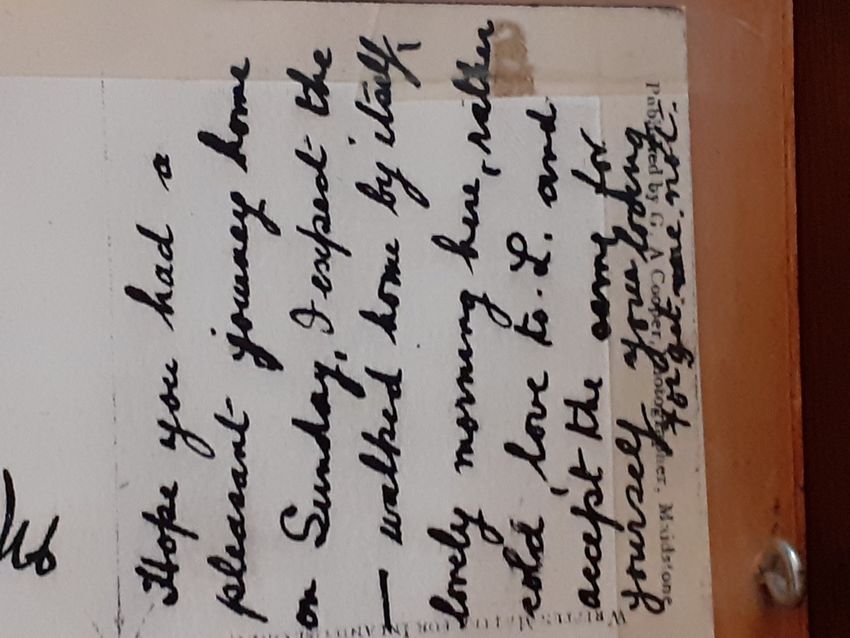 Hope you had a
pleasant journey home
on Sunday, I expect the
— walked home by itself,
lovely morning here, rather
cold, love to. L. and
accept the same for
yourself your loving
forget me not.
Published by G. A. Cooper, Photographer, Maidstone